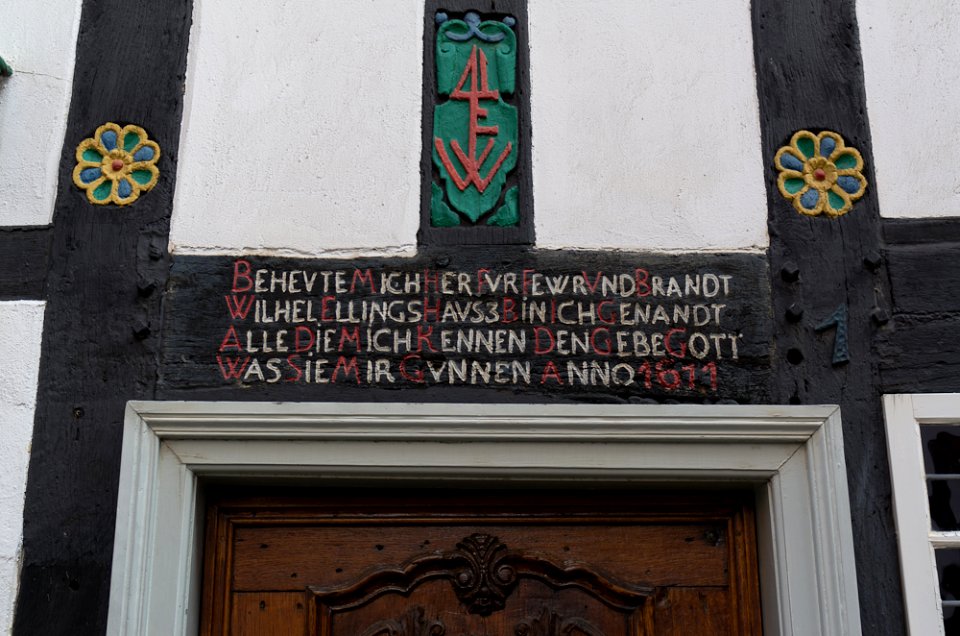 4
E
W
BEHEVTE MICH HER FVR FEWR VND BRANDT
WILHEL ELLINGS HAVS BIN ICH GENANDT
ALLE DIE MICH KENNEN DEN GEBE GOTT
WAS SIE MIR GVNNEN ANNO 1611